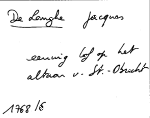 De Langhe Jacques
eeuwig lof op het
altaar v. St.-Obrecht
1768/6